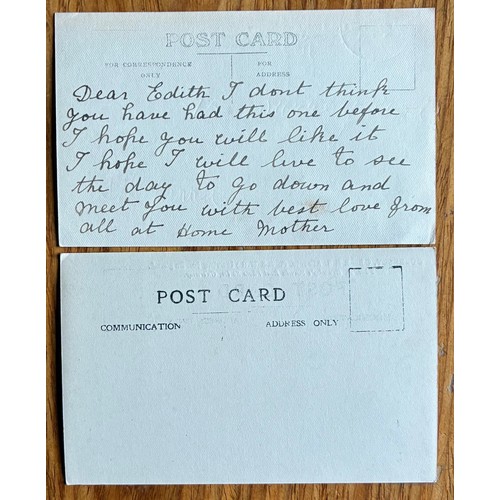 POST CARD
FOR CORRESPONDENCE ONLY
FOR ADDRESS
Dear Edith I dont think
you have had this one before
I hope you will like it
I hope I will live to see
the day to go down and
meet you with best love from
all at Home Mother
POST CARD
COMMUNICATION
ADDRESS ONLY